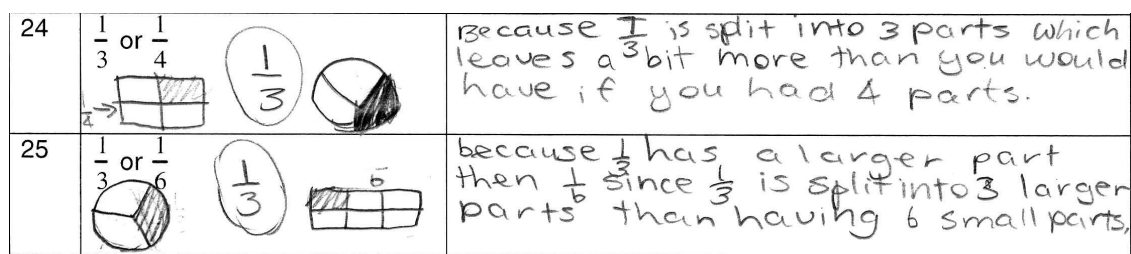 24
1/3 or 1/4
1/4
1/3
Because 1/3 is split into 3 parts which
leaves a bit more than you would
have if you had 4 parts.
25
1/3 or 1/6
1/3
6
because 1/3 has a larger part
then 1/6 since 1/3 is split into 3 larger
parts than having 6 small parts,